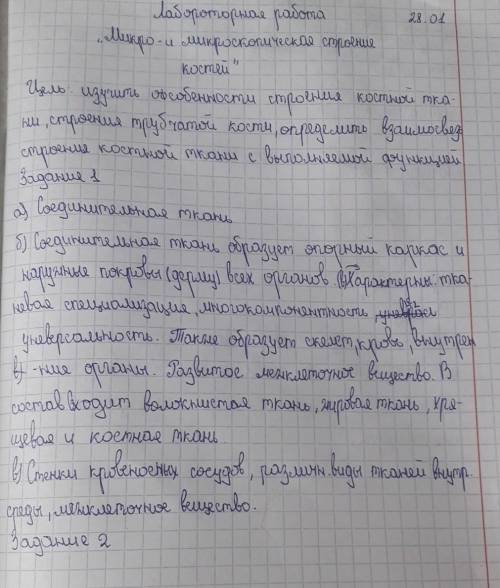 Лабороторная работа 28.01
„Микро- и микроскопическая строение
костей"
Цель: изучить особенности строения костной тка-
ни, строения трубчатой кости, определить взаимосвяз
строение костной ткани с выполняемой функцией
Задание 1
а) Соединительная ткань
б) Соединительная ткань образует опорный каркас и
наружные покровы (дерму) всех органов. Характерны: тка-
невая специализация, многокомпонентность
универсальность. Также образует скелет, кровь, внутрен
-ние органы. Развитое межклеточное вещество. В
состав входит волокнистая ткань, жировая ткань, хря-
щевая и костная ткань
в) Стенки кровеносных сосудов, различн. виды тканей внутр.
среды, межклеточное вещество.
Задание 2